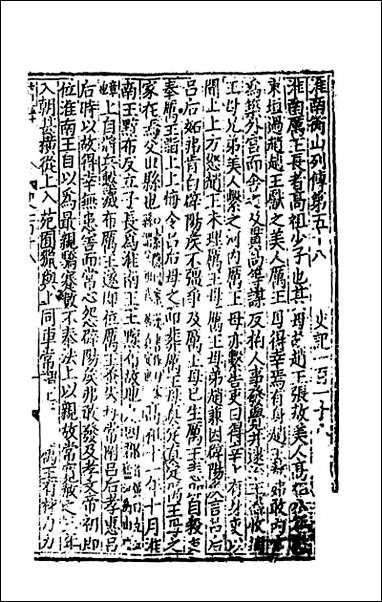 淮南衡山列傳第五十八 史記一百一十
淮南厲王長者高祖少子也其母故趙王張敖美人高祖八年從
東垣過趙趙王獻之美人厲王母得幸焉有身趙王敖弗敢內宮
為築外宮而舍之及貫高等謀反柏人事發覺并逮治王盡收捕
王母兄弟美人繫之河內厲王母亦繫告吏曰得幸上有身吏以
聞上上方怒趙王未理厲王母厲王母弟趙兼因辟陽侯言呂后
呂后妬弗肯白辟陽侯不彊爭及厲王母已生厲王恚即自殺吏
奉厲王詣上上悔令呂后母之而葬厲王母真定真定厲王母之
家在焉父世縣也 十一年十月淮
南王黥布反立子長為淮南王王黥布故地凡四郡
上自將兵擊滅布厲王遂即位厲王蚤失母常附呂后孝惠呂
后時以故得幸無患害而常心怨辟陽侯弗敢發及孝文帝初即
位淮南王自以為最親驕蹇數不奉法上以親故常寬赦之三年
入朝甚橫從上入苑囿獵與上同車常謂上 厲王有材力力